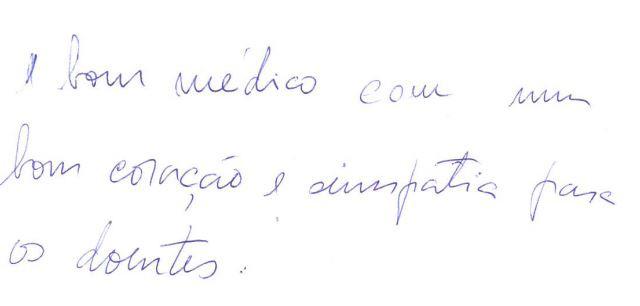 1 bom médico com um
bom coração e simpatia para
os doentes.